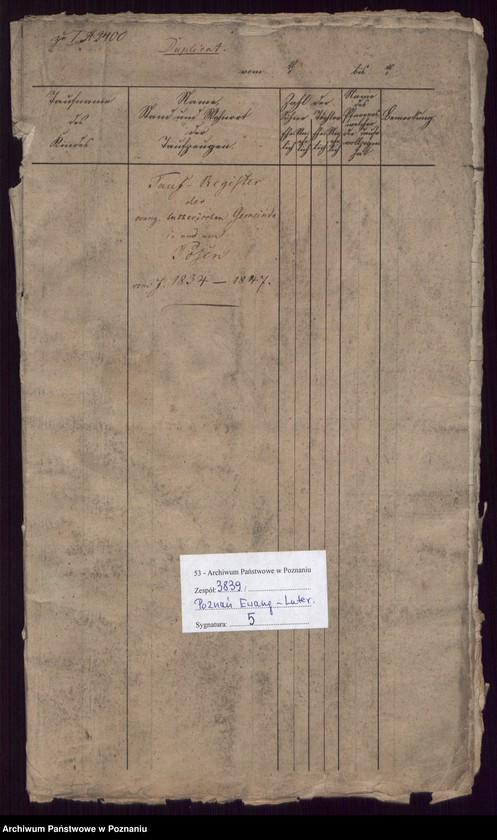 zu I. A 2400
Duplicat.
vom bis
Taufname
des
Kindes
Name,
Stand und Wohnort
der
Taufzeugen.
Zahl der
Söhne Töchter
Name
des
Pfarrers
welcher
die Taufe
vollzogen
hat
Bemerkung
Tauf-Register
der
evang. lutherischen Gemeinde
in und um
Posen
vom J. 1834 – 1847.
53 - Archiwum Państwowe w Poznaniu
Zespół: 3839,
Poznań Ewang-Luter.
Sygnatura: 5
Archiwum Państwowe w Poznaniu